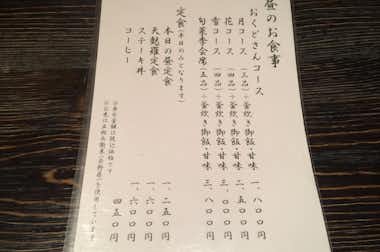 昼のお食事
おくどさんコース
月コース (三品)+釜炊き御飯・甘味 一、八〇〇円
花コース (四品)+釜炊き御飯・甘味 二、五〇〇円
雪コース (四品)+釜炊き御飯・甘味 三、〇〇〇円
旬菜季会席 (五品)+釜炊き御飯・甘味 三、八〇〇円
定食(平日のみとなります)
本日の昼定食 一、二五〇円
天麩羅定食 一、六〇〇円
ステーキ丼 一、六〇〇円
コーヒー 四五〇円
※表示金額は税込価格です